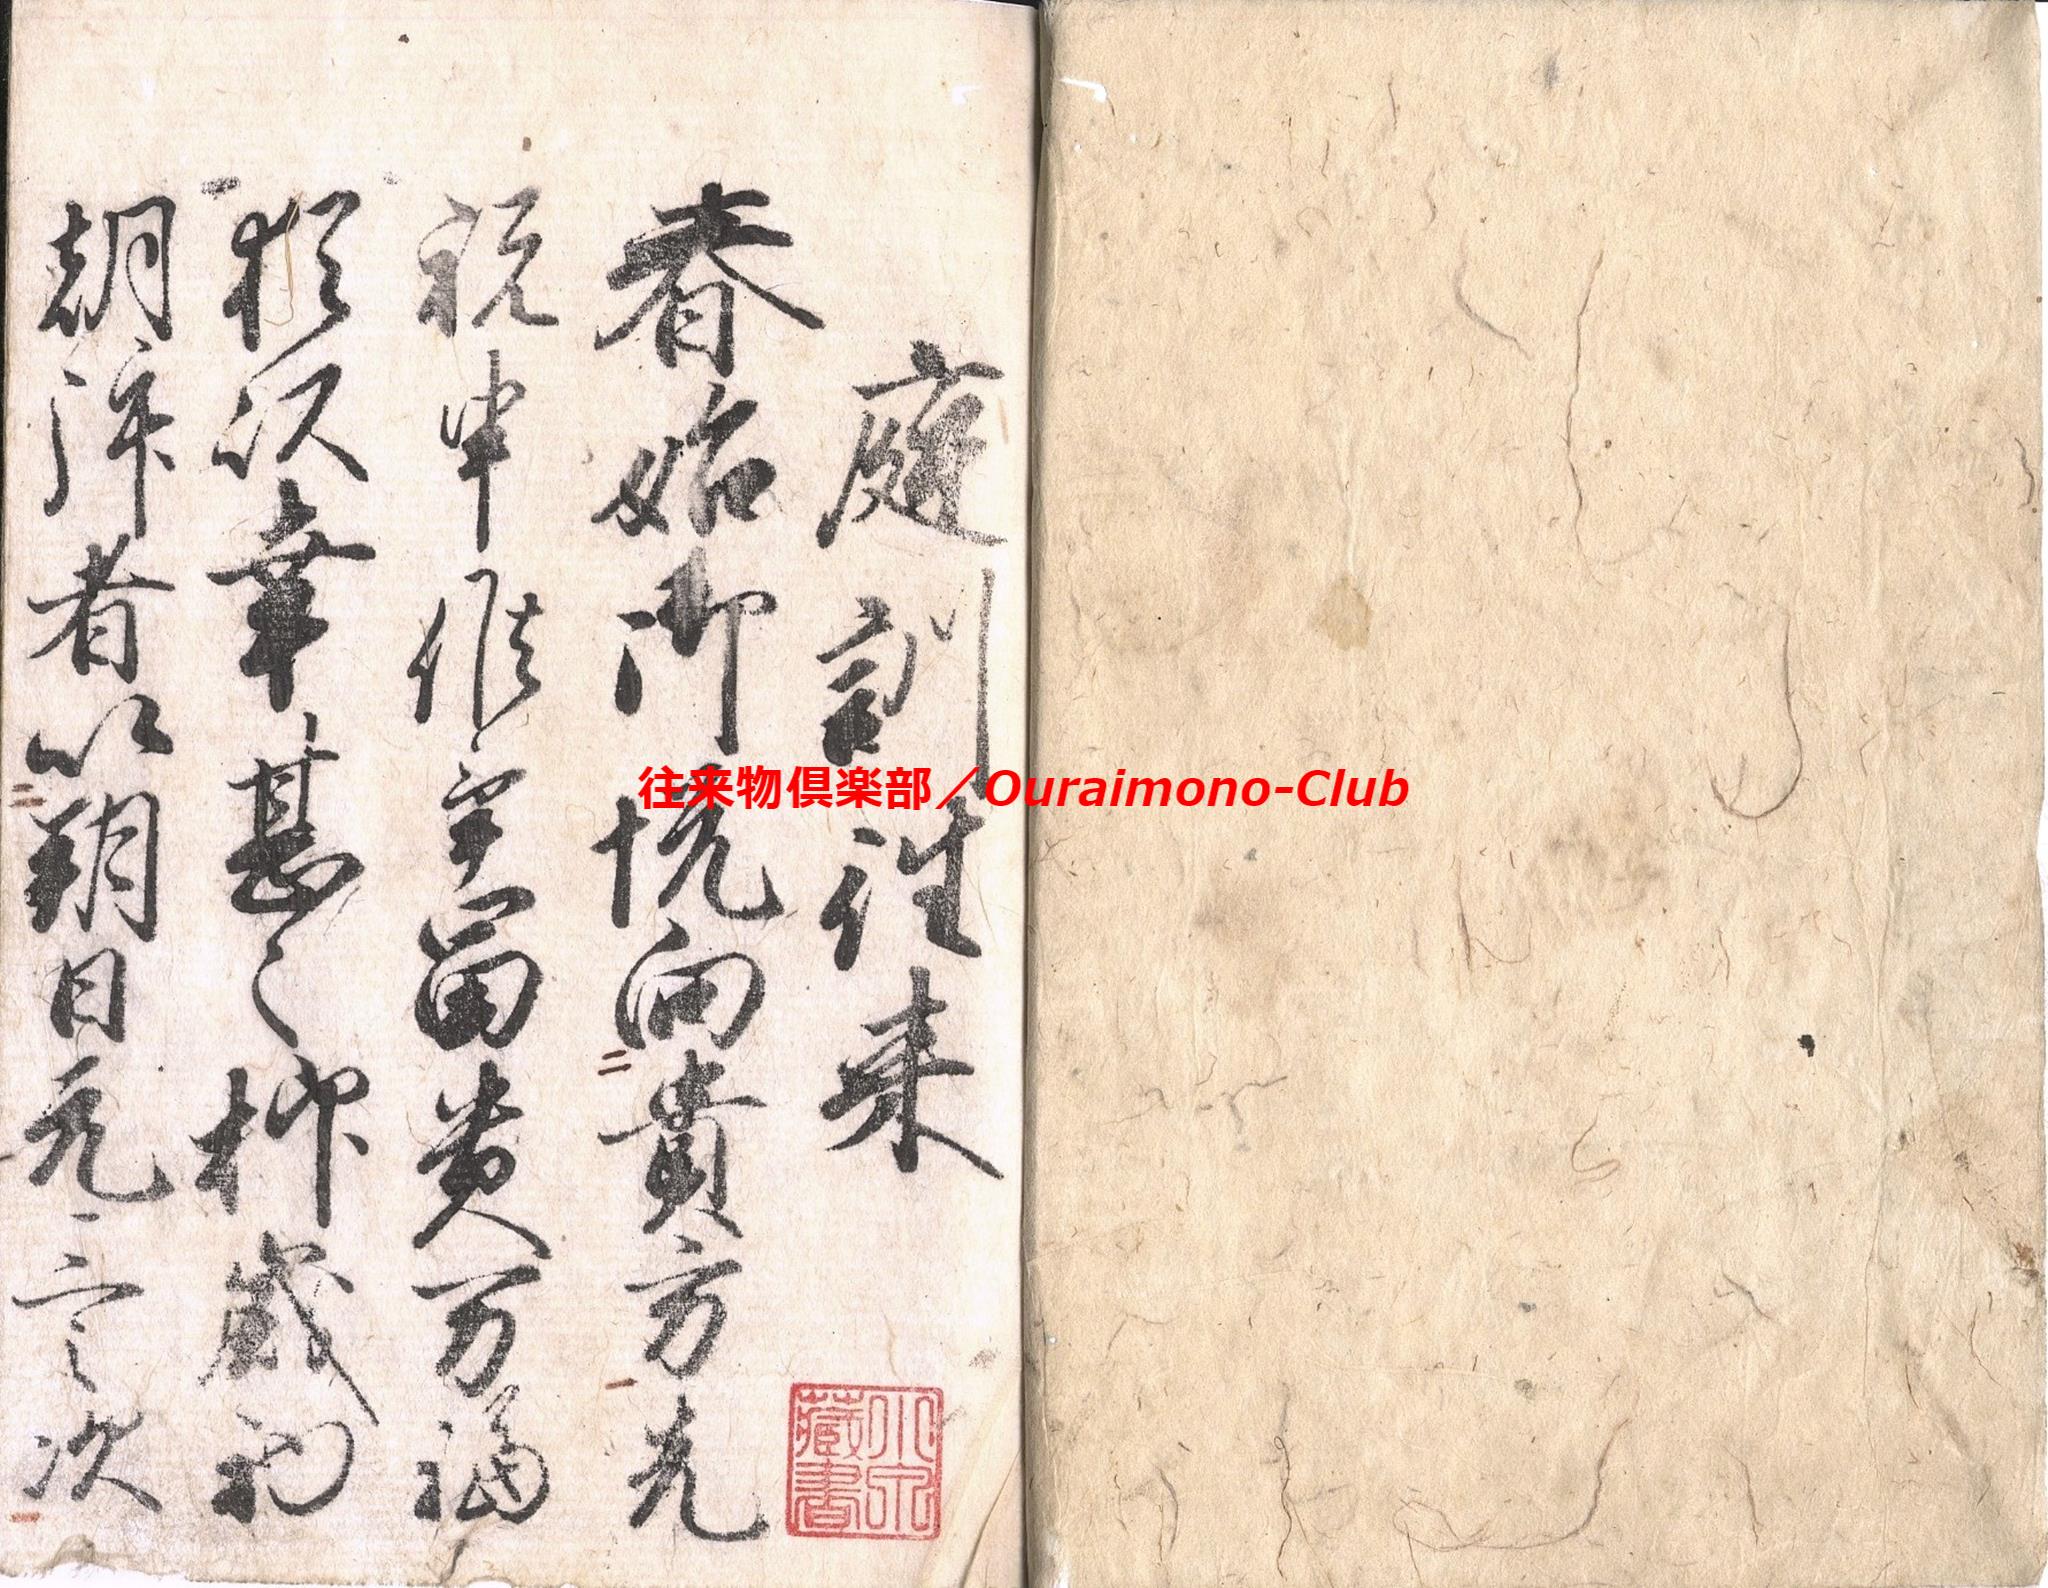 庭訓往来
春始御悦向貴方先
祝申候畢冨貴万福
猶以幸甚々抑歳初
朝拝者以朔日元三之次
藏書
往来物倶楽部／Ouraimono-Club